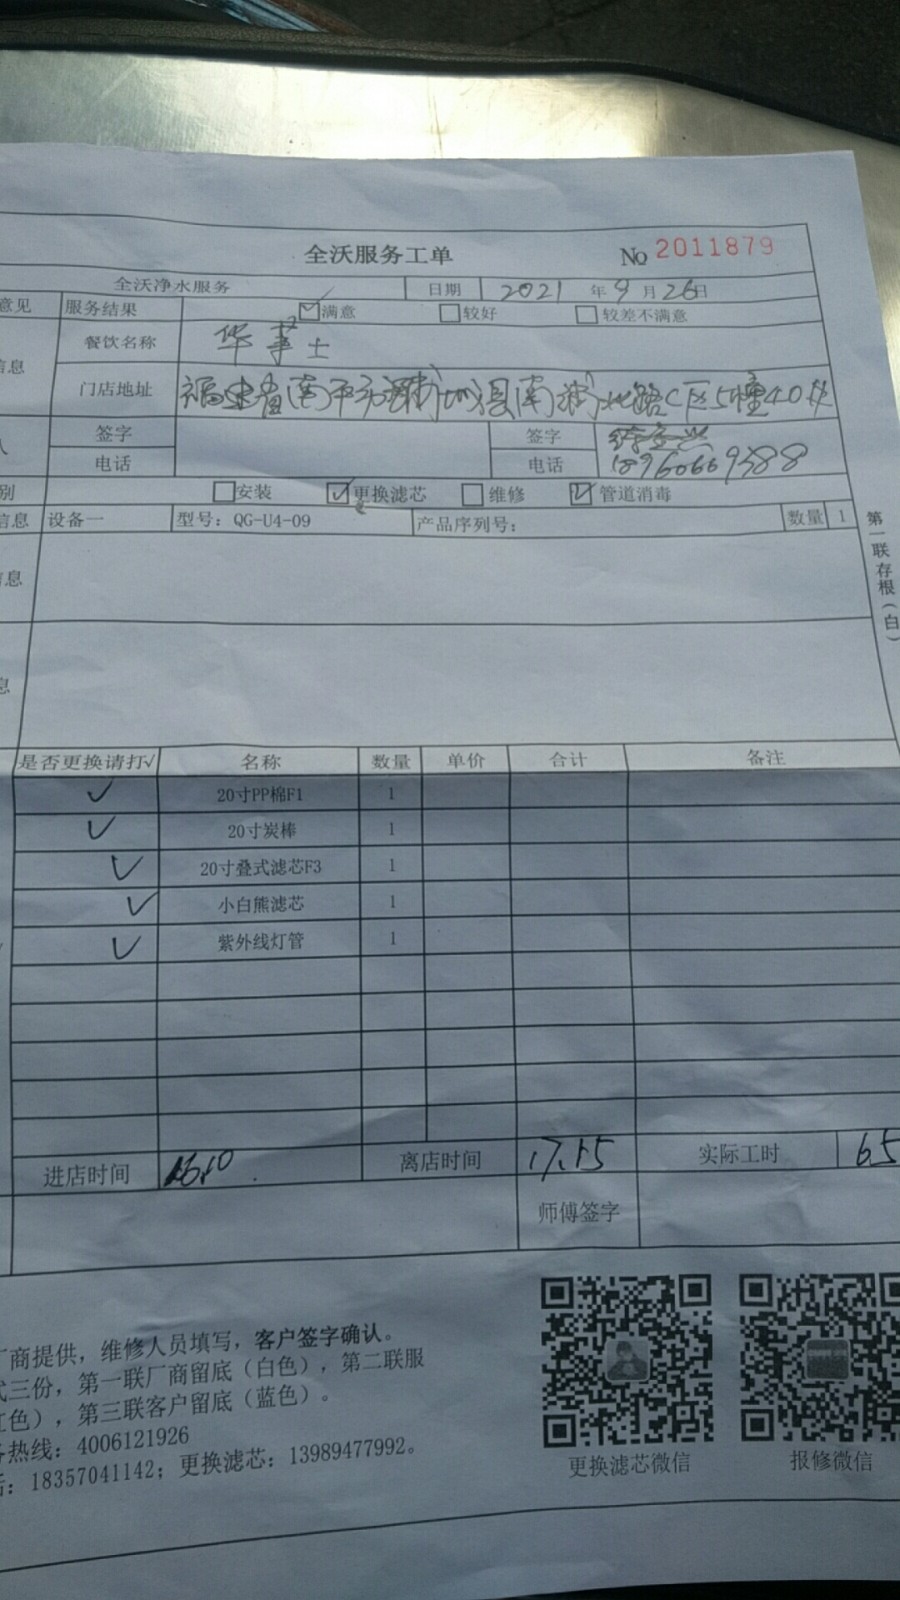 全沃服务工单 No 2011879
全沃净水服务 日期 2021 年 9 月 26 日
意见 服务结果 满意 较好 较差不满意
信息 餐饮名称 华莱士
门店地址 福建省南平市浦城县南浦北路C区5幢40号
人 签字 签字
电话 电话 18960669388
别 安装 更换滤芯 维修 管道消毒
信息 设备一 型号：QG-U4-09 产品序列号： 数量 1
第一联存根（白）
信息
息
是否更换请打√ 名称 数量 单价 合计 备注
✓ 20寸PP棉F1 1
✓ 20寸炭棒 1
✓ 20寸叠式滤芯F3 1
✓ 小白熊滤芯 1
✓ 紫外线灯管 1
进店时间 16.10 离店时间 17.15 实际工时 65
师傅签字
厂商提供，维修人员填写，客户签字确认。
式三份，第一联厂商留底（白色），第二联服
红色），第三联客户留底（蓝色）。
务热线：4006121926
话：18357041142；更换滤芯：13989477992。
更换滤芯微信 报修微信